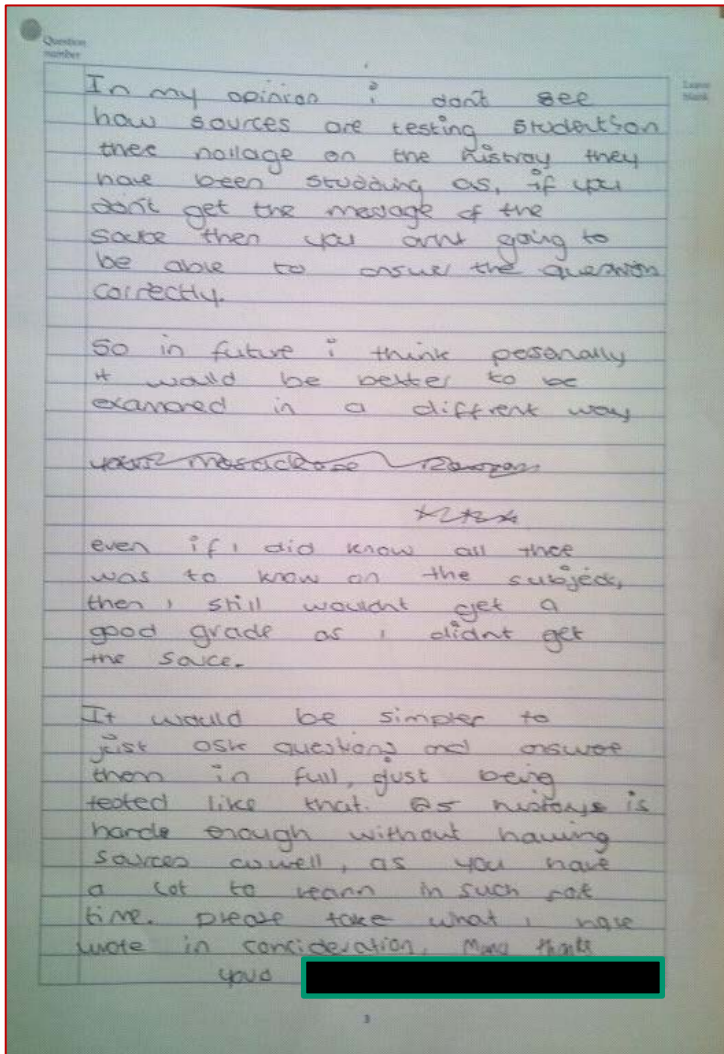 Question number
Leave blank
In my opinion i dont see
how sources are testing students on
thee nollage on the histray they
have been studding as, if you
don't get the message of the
source then you arnt going to
be able to answer the question
correctly.
So in future i think pesonally
it would be better to be
examored in a diffrent way
even if i did know all thee
was to know on the subject,
then i still wouldnt get a
good grade as i didnt get
the source.
It would be simpler to
just ask questions and answer
them in full, just being
tested like that. as historys is
harde enough without hawing
sources aswell, as you have
a lot to leann in such
time. please take what i have
wrote in concideration. Many thanks
3